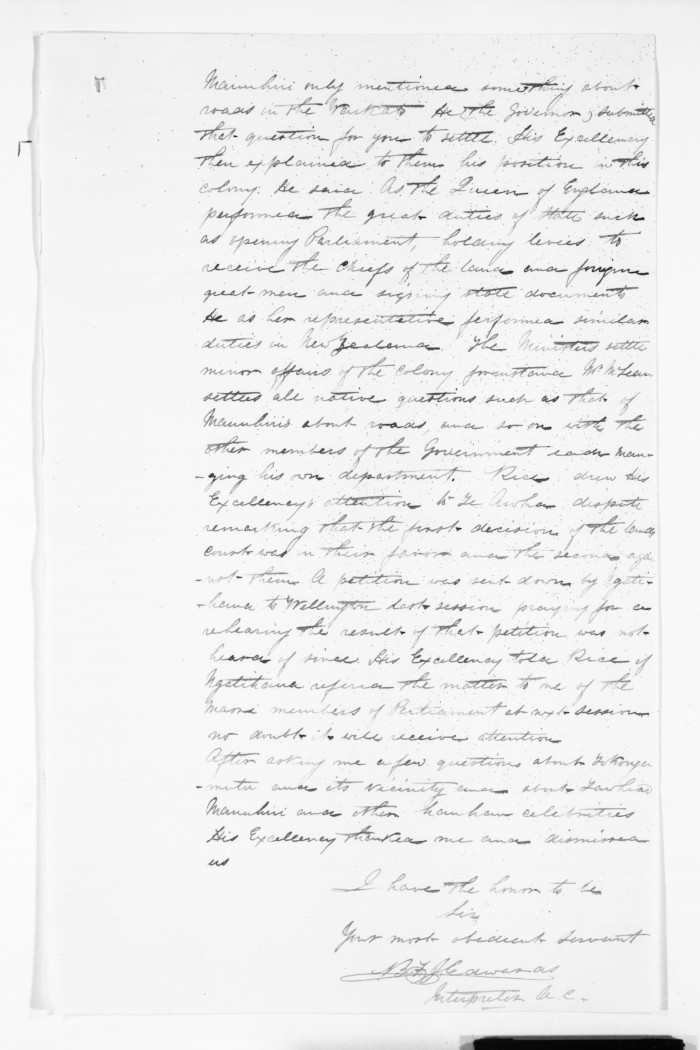 Manuhiri only mentioned something about
roads in the Waikato He (the Governor) submitted
that question for you to settle. His Excellency
then explained to them his position in this
colony. He said As the Queen of England
performed the great duties of State such
as opening Parliament, holding levies to
receive the chiefs of the land and foreign
great men and signing state documents
He as her representative performed similar
duties in New Zealand. The Ministers settle
minor affairs of the Colony for instance Mr McLean
settles all native questions such as that of
Manuhiri's about roads, and so on with the
other members of the Government each man-
-ging his own department. Rice drew His
Excellency's attention to Te Aroha dispute
remarking that the first decision of the lands
court was in their favor and the second agai
-nst them A petition was sent down by Ngati-
-haua to Wellington last session praying for a
rehearing the result of that petition was not
heard of since. His Excellency told Rice if
Ngatihaua referred the matter to one of the
Maori members of Parliament at next session
no doubt it will receive attention
After asking me a few questions about Tokanga-
-mutu and its vicinity and about Tawhiao
Manuhiri and other hauhau celebrities
His Excellency thanked me and dismissed
us
I have the honor to be
Sir
Your most obedient servant
Edwards
Interpreter A.C.